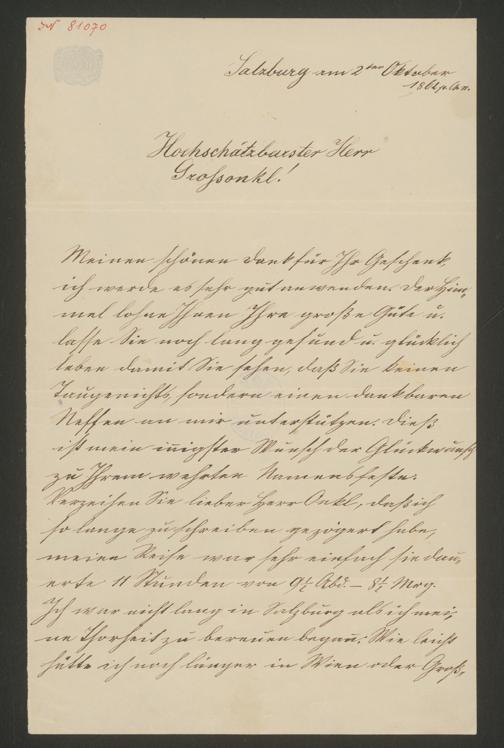 IN 81070
Salzburg am 2ten Oktober
Hochschätzbarster Herr
Grossonkl!
Meinen schönen Dank für Ihr Geschenk,
ich werde es sehr gut anwenden. Der Him-
mel lohne Ihnen Ihre große Güte u.
lasse Sie noch lang gesund u. glücklich
leben damit Sie sehen, daß Sie keinen
Taugenichts, sondern einen dankbaren
Neffen an mir unterstützen. Dieß
ist mein innigster Wunsch der Glückwunsch
zu Ihrem wehrten Namensfeste.
Verzeihen Sie lieber Herr Onkl, daß ich
so lange zu schreiben gezögert habe,
meine Reise war sehr einfach sie dau-
erte 11 Stunden von 9½ Abd. – 8½ Mrg.
Ich war nicht lang in Salzburg als ich mei-
ne Thorheit zu bereuen begann. Wie leicht
hätte ich noch länger in Wien oder Groß-